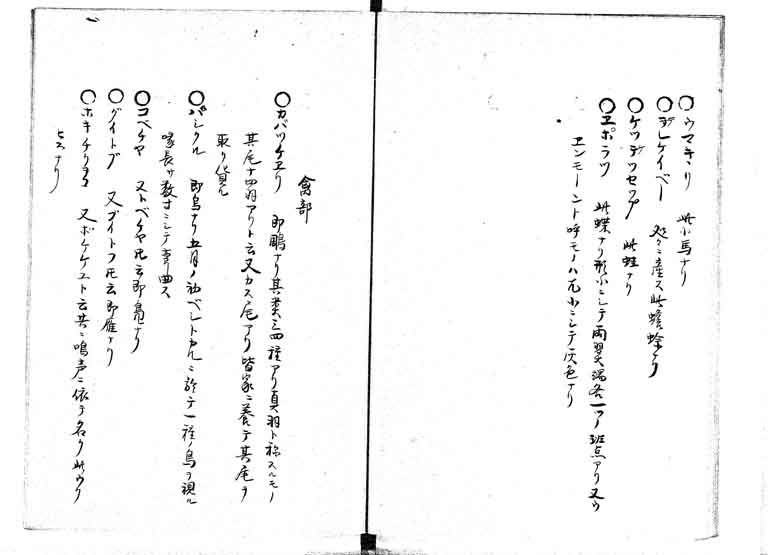 ○ウマキリ 此小馬ナリ
○ヲレケイベー 処々ニ産ス此蟾蜍ナリ
○ケツヲツセツプ 此蛙ナリ
○ヱポラツ 此蝶ナリ形小ニシテ両翼ノ端各一ツノ斑点アリ又ウ
ヱンモーント呼モノハ尤小ニシテ灰色ナリ
禽部
○カバツケヱリ 即鵰ナリ其類三四種アリ真羽ト称スルモノ
其尾十四羽アリト云又カス尾アリ皆家ニ養テ其尾ヲ
取リ貸ル
○バシクル 即烏ナリ五月ノ初ベシトカルニ於テ一種ノ鳥ヲ視ル
喙長サ数寸ニシテ曲ス
○コベケヤ 又トベケヤ氏云即鳧ナリ
○クイトブ 又ブイトフ氏云即雁ナリ
○ホキチリ 又ボケケスト云共ニ鳴声ニ依テ名ク此ウグ
ヒスナリ